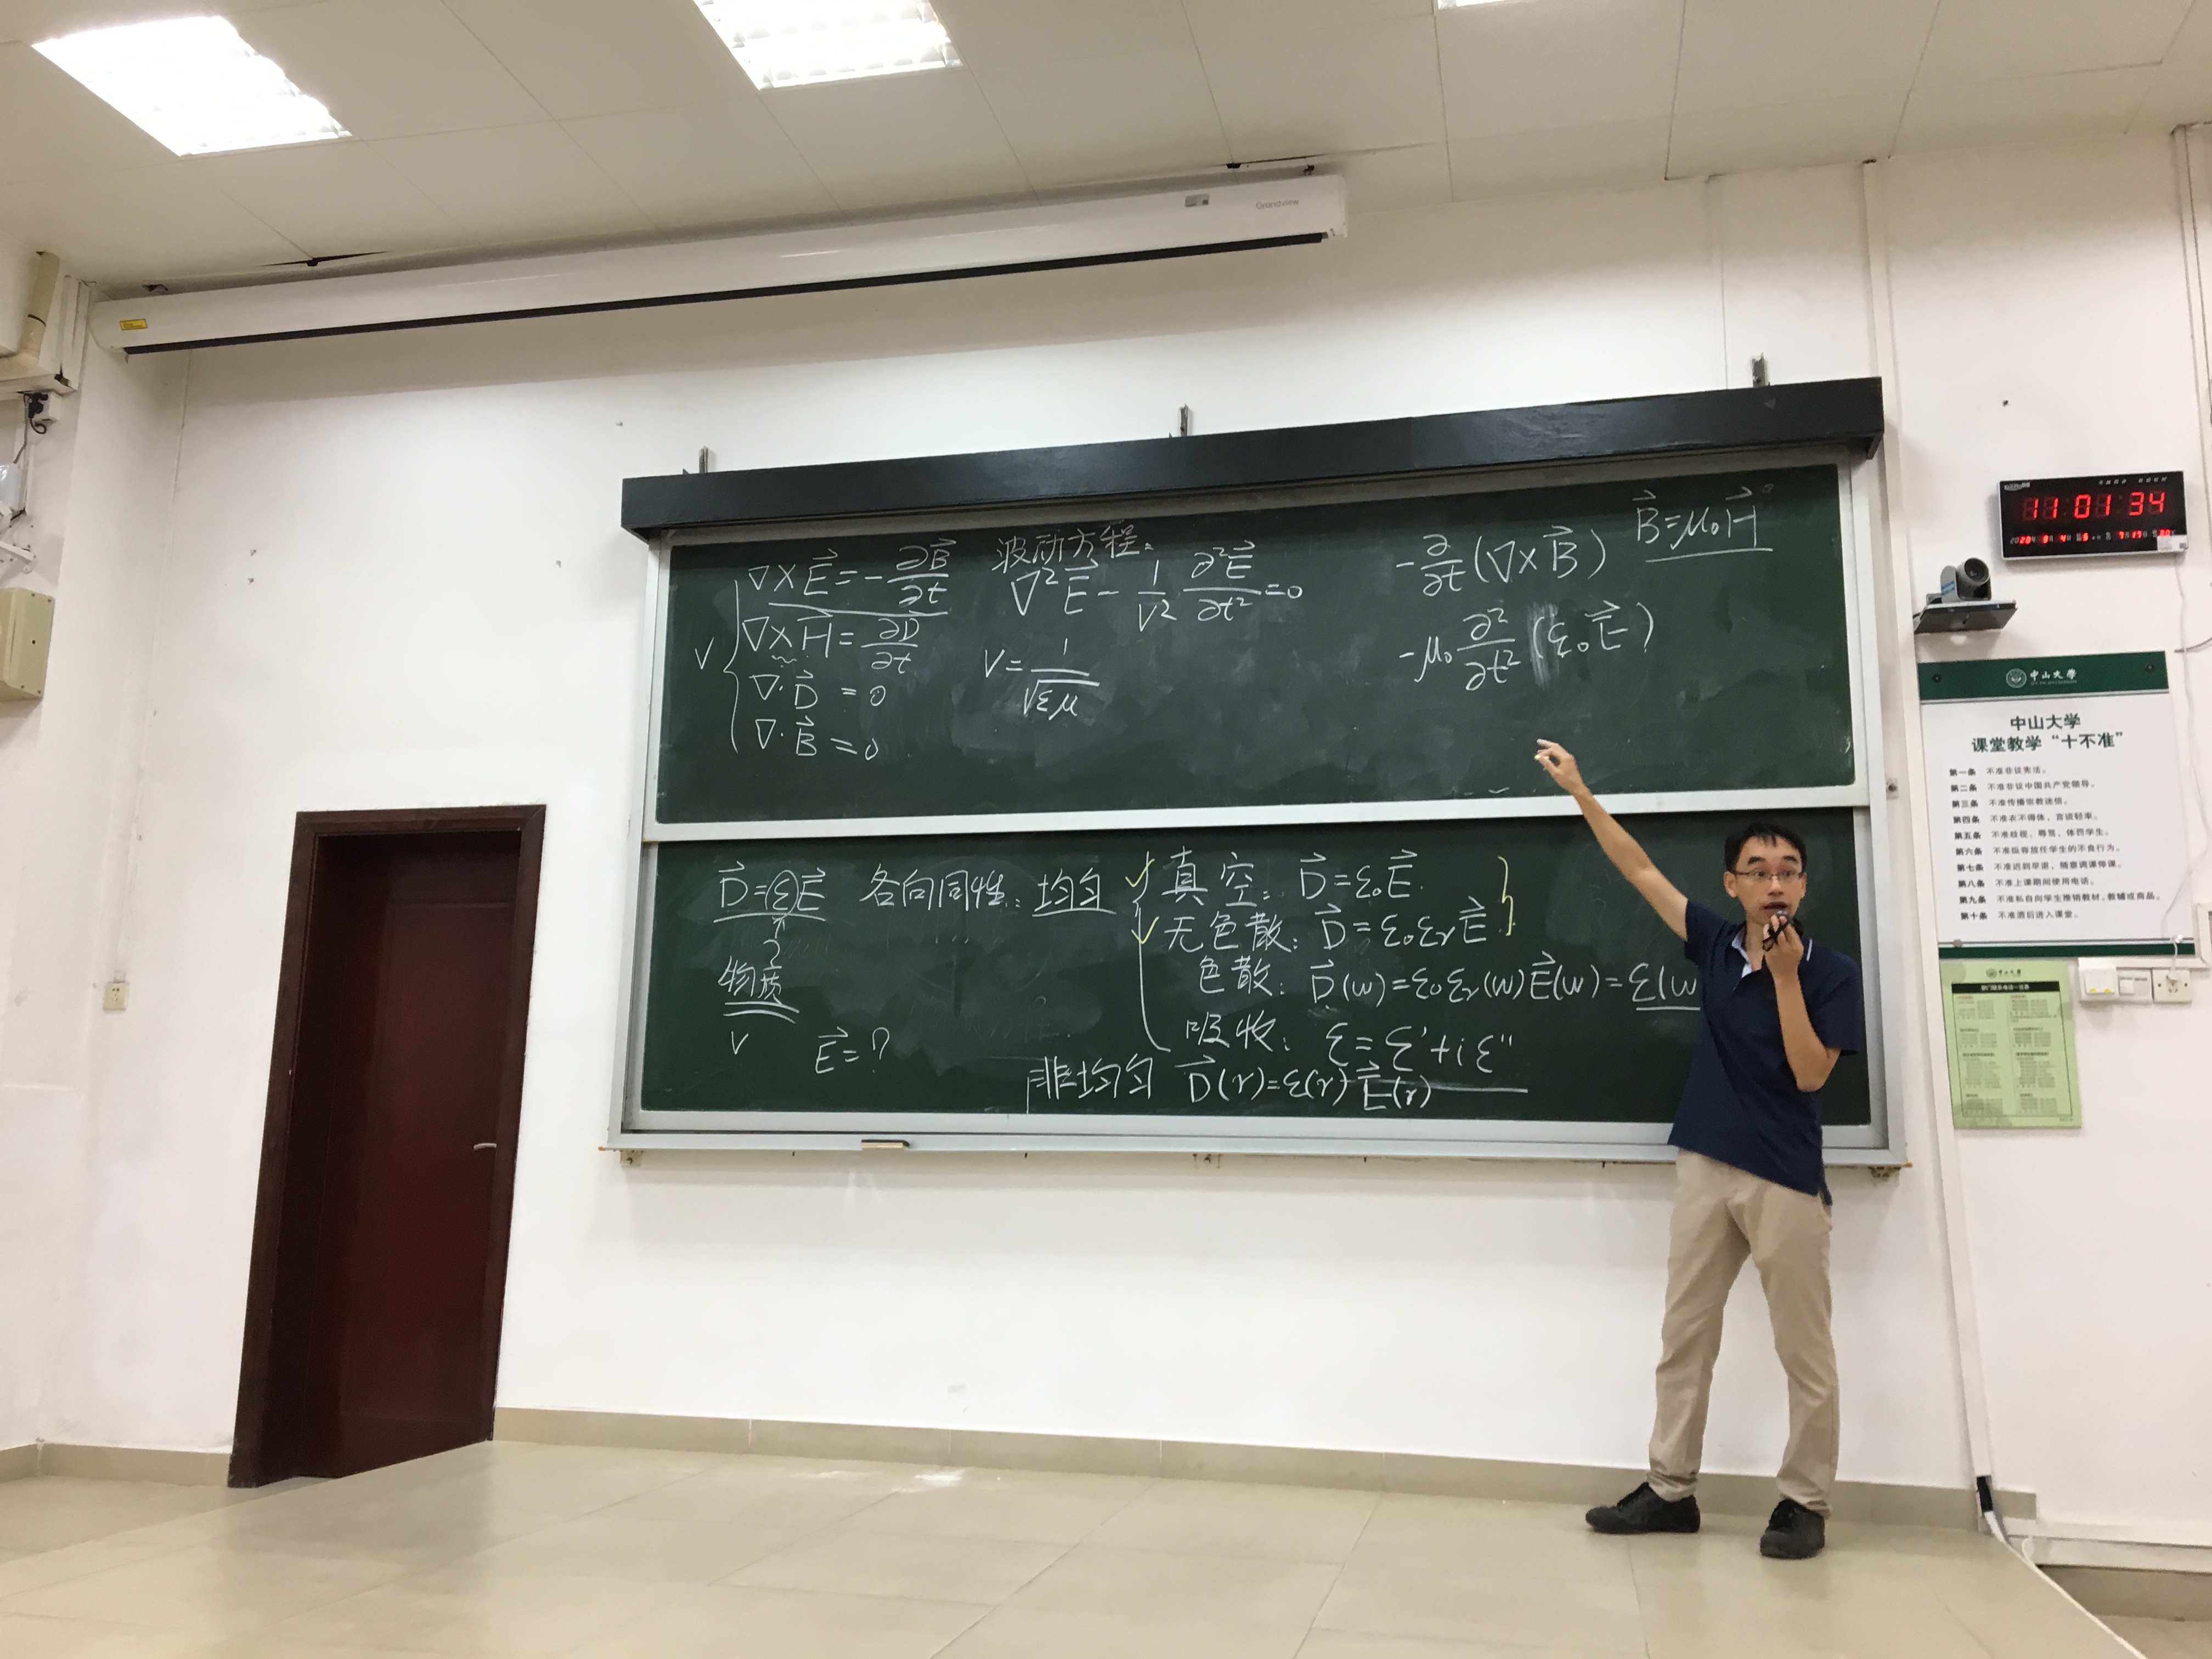 Grandview
∇×E⃗=-∂B⃗/∂t
∇×H⃗=∂D⃗/∂t
∇·D⃗=0
∇·B⃗=0
V
波动方程:
∇²E⃗-1/V² ∂²E⃗/∂t²=0
V=1/√εμ
-∂/∂t(∇×B⃗)
B⃗=μ₀H⃗
-μ₀∂²/∂t²(ε₀E⃗)
D⃗=εE⃗
物质
V
E⃗=?
各向同性: 均匀
真空: D⃗=ε₀E⃗
无色散: D⃗=ε₀εᵣE⃗
色散: D⃗(w)=ε₀εᵣ(w)E⃗(w)=ε(w
吸收: ε=ε'+iε''
非均匀 D⃗(r)=ε(r)E⃗(r)
11:01:34
中山大学
中山大学
课堂教学“十不准”
第一条 不准非议宪法。
第二条 不准非议中国共产党领导。
第三条 不准传播宗教迷信。
第四条 不准衣不得体，言谈轻率。
第五条 不准歧视、辱骂、体罚学生。
第六条 不准纵容放任学生的不良行为。
第七条 不准迟到早退，随意调课停课。
第八条 不准上课期间使用电话。
第九条 不准私自向学生推销教材、教辅或商品。
第十条 不准酒后进入课堂。
中山大学